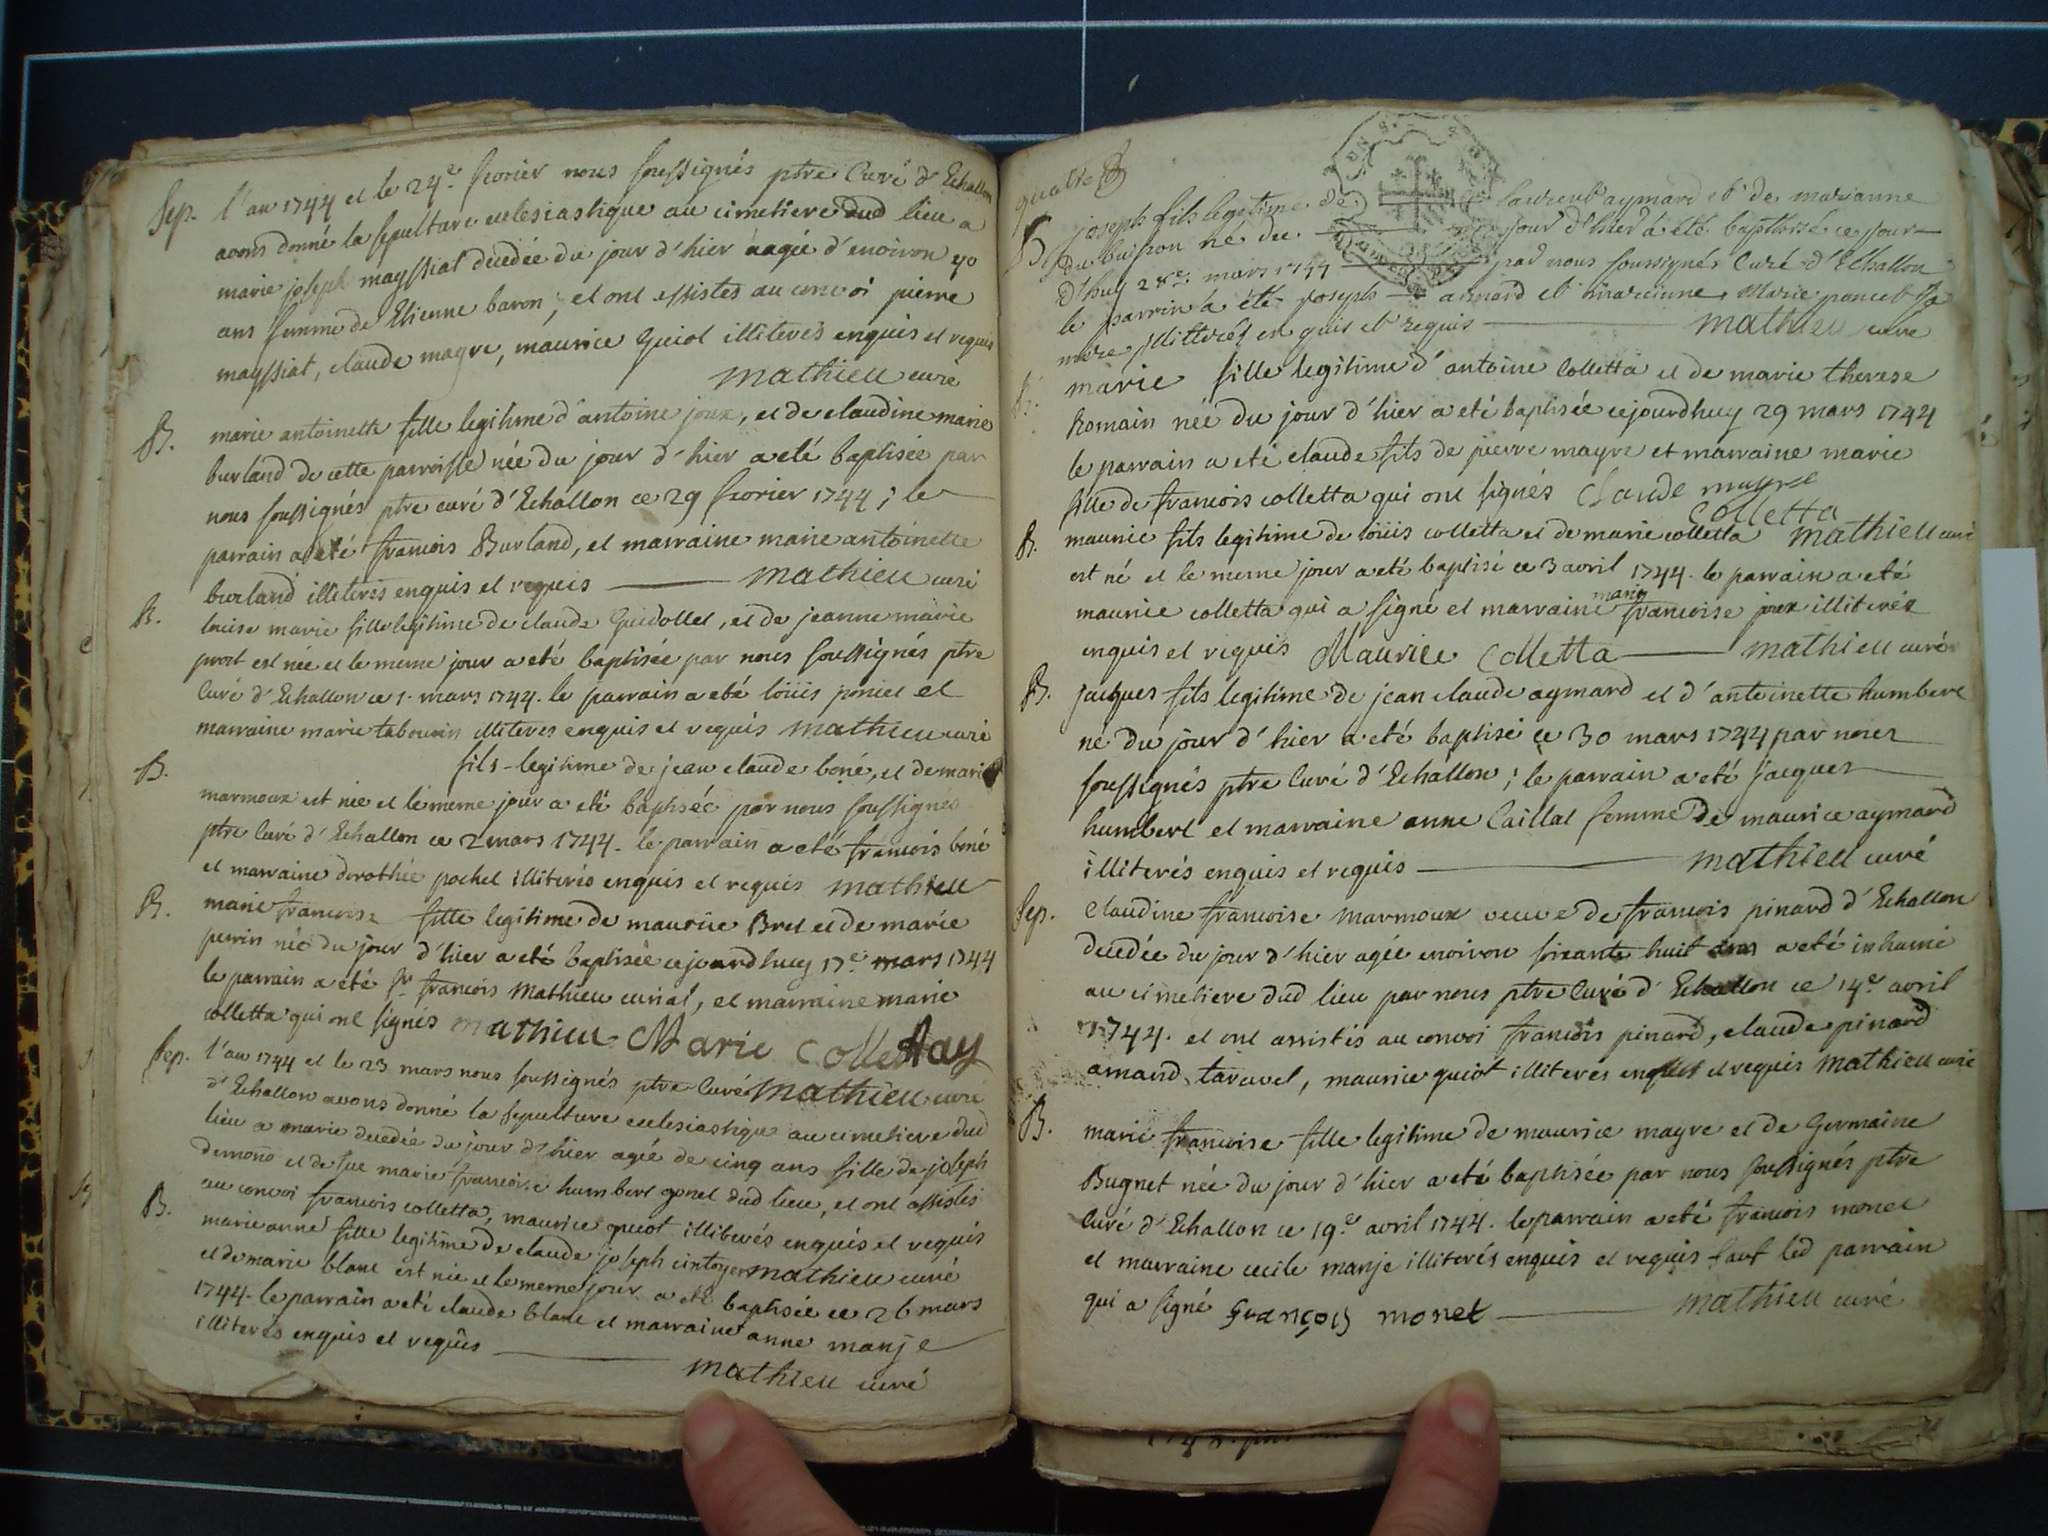 Sep. l'an 1744 et le 24e. fevrier nous soussignés ptre Curé d'Echallon
avons donné la sepulture ecclesiastique au cimetiere dud lieu a
marie joseph mayssiat decedée du jour d'hier aagée d'environ 40
ans femme de Etienne baron, et ont assistes au convoi pierre
mayssiat, claude mayre, maurice guiot illiterés enquis et requis
mathieu curé
B. marie antoinette fille legitime d'antoine joux, et de claudine marie
burland de cette parroisse née du jour d'hier a eté baptisée par
nous soussignés ptre curé d'Echallon ce 29 fevrier 1744; le
parrain a eté francois Burland, et marraine marie antoinette
burland illiterés enquis et requis mathieu curé
B. louise marie fille legitime de claude Guidollet, et de jeanne marie
prost est née et le meme jour a eté baptisée par nous soussignés ptre
Curé d'Echallon ce 1. mars 1744. le parrain a eté loüis poncet et
marraine marie tabourin illiteres enquis et requis mathieu curé
B. fils legitime de jean claude boné, et de marie
marmoux est née et le meme jour a eté baptisée par nous soussignés
ptre Curé d'Echallon ce 2 mars 1744. le parrain a eté francois boné
et marraine dorothée pochet illiterés enquis et requis mathieu
B. marie francoise fille legitime de maurice Bret et de marie
perrin née du jour d'hier a eté baptisée cejourdhuy 17e. mars 1744
le parrain a eté sr francois Mathieu curial, et marraine marie
colletta qui ont signés mathieu Marie Collettay
mathieu curé
Sep. l'an 1744 et le 23 mars nous soussignés ptre Curé
d'Echallon avons donné la sepulture ecclesiastique au cimetiere dud
lieu a marie decedée du jour d'hier agée de cinq ans fille de joseph
demono et de fue marie francoise humbert gonet dud lieu, et ont assistés
au convoi francois colletta, maurice guiot illiterés enquis et requis
mathieu curé
B. marie anne fille legitime de claude joseph
et de marie blanc est née et le meme jour a eté baptisée ce 26 mars
1744. le parrain a eté claude blanc et marraine anne manje
illiteres enquis et requis
mathieu curé
quatre
B joseph fils legetime de laurent aymard et de marianne
du buisson né du jour d'hier a été baptissé ce jour
d'huy 28e. mars 1744 par nous soussignés Curé d'Echallon
le parrin a été joseph aimard et marienne Marie poncet
mere illitterés en quis et requis mathieu curé
B. marie fille legitime d'antoine Colletta et de marie therese
Romain née du jour d'hier a eté baptisée cejourdhuy 29 mars 1744
le parrain a eté claude fils de pierre mayre et marraine marie
fille de francois colletta qui ont signés Claude mayre
Colletta
mathieu curé
B. maurice fils legitime de loüis colletta et de marie colletta
est né et le meme jour a eté baptisé ce 3 avril 1744. le parrain a eté
maurice colletta qui a signé et marraine marie francoise joux illiterés
enquis et requis Maurice Colletta mathieu curé
B. jacques fils legitime de jean claude aymard et d'antoinette humbert
né du jour d'hier a eté baptisé ce 30 mars 1744 par nous
soussignés ptre Curé d'Echallon; le parrain a eté jacques
humbert et marraine anne Caillat femme de maurice aymard
illiterés enquis et requis mathieu curé
Sep. Claudine francoise marmoux veuve de francois pinard d'Echallon
decedée du jour d'hier agée environ soixante huit ans a eté inhumé
au cimetiere dud lieu par nous ptre Curé d'Echallon ce 14e. avril
1744. et ont assistés au convoi francois pinard, claude pinard
amand taravel, maurice guiot illiteres enquis et requis mathieu curé
B. marie francoise fille legitime de maurice mayre et de Germaine
Bugnet née du jour d'hier a eté baptisée par nous soussignés ptre
Curé d'Echallon ce 19e. avril 1744. le parrain a eté francois monet
et marraine cecile manje illiterés enquis et requis sauf led parrain
qui a signé François monet mathieu curé